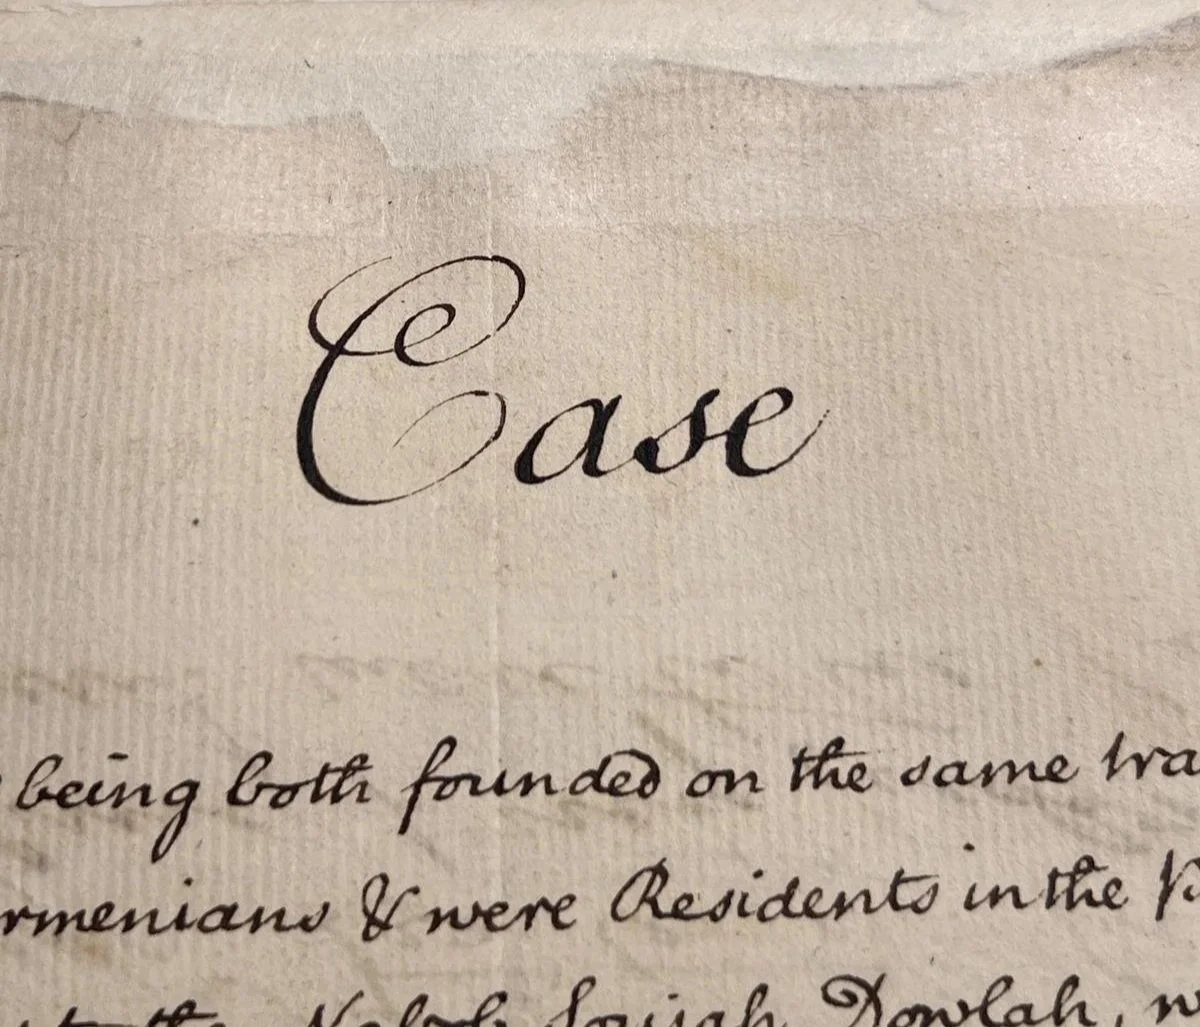 Case
being both founded on the same tra
rmenians & were Residents in the
to the Nabob Soujah Dowlah, w